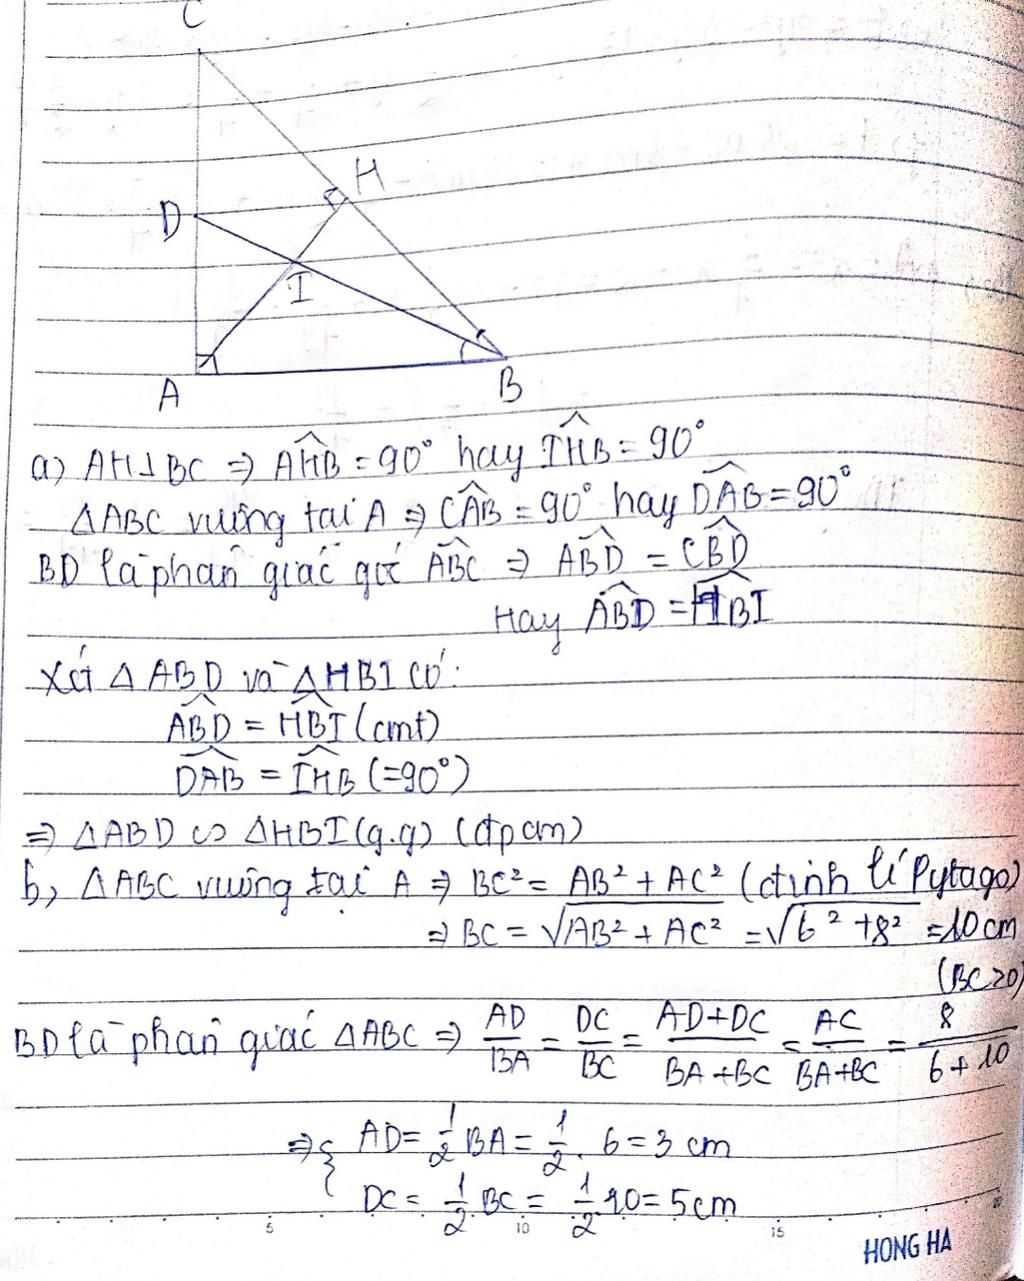 C
H
D
I
A
B
a) AH⊥BC ⇒ \widehat{AHB} = 90° hay \widehat{IHB} = 90°
ΔABC vuông tại A ⇒ \widehat{CAB} = 90° hay \widehat{DAB} = 90°
BD là phân giác góc \widehat{ABC} ⇒ \widehat{ABD} = \widehat{CBD}
Hay \widehat{ABD} = \widehat{HBI}
Xét Δ ABD và Δ HBI có:
\widehat{ABD} = \widehat{HBI} (cmt)
\widehat{DAB} = \widehat{IHB} (=90°)
⇒ ΔABD ∽ ΔHBI (g.g) (đpcm)
b, ΔABC vuông tại A ⇒ BC² = AB² + AC² (định lí Pytago)
⇒ BC = √(AB² + AC²) = √(6² + 8²) = 10 cm
(BC>0)
BD là phân giác ΔABC ⇒ AD/BA = DC/BC = (AD+DC)/(BA+BC) = AC/(BA+BC) = 8/(6+10)
⇒ { AD = 1/2 BA = 1/2 . 6 = 3 cm
DC = 1/2 BC = 1/2 . 10 = 5 cm
5 10 15
HONG HA